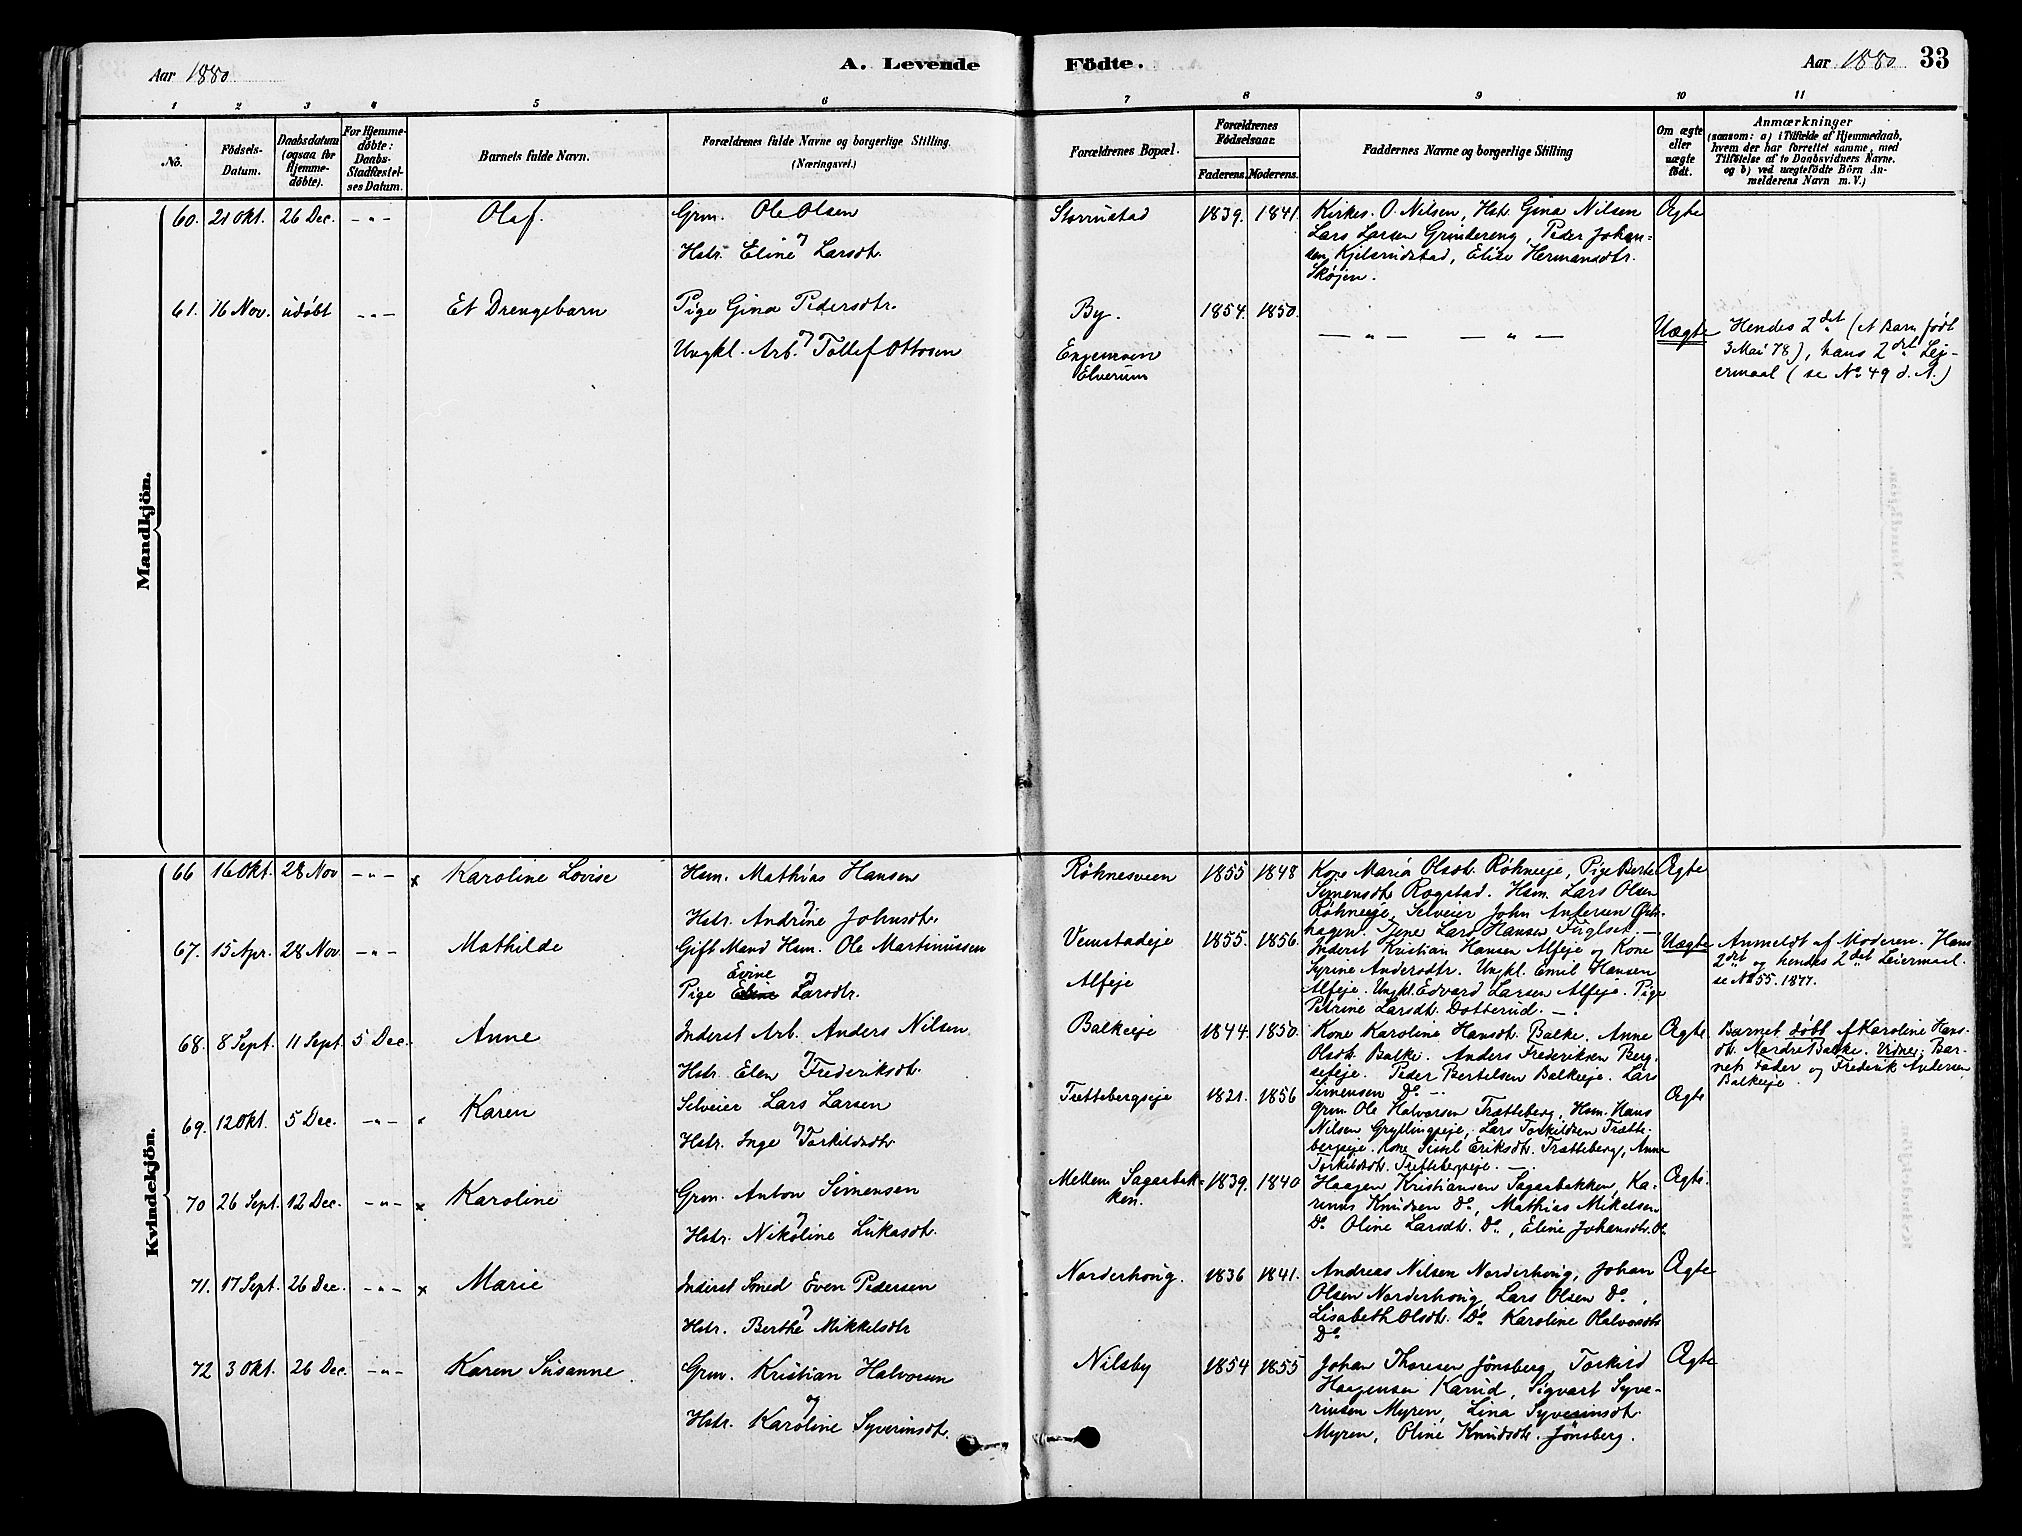 Aar 1880
A. Levende
Födte.
Aar 1880
33
1 2 3 4 5 6 7 8 9 10 11
No.
Födsels-
Datum.
Daabsdatum
(ogsaa for
Hjemme-
döbte).
For Hjemme-
döbte:
Daabs-
Stadfæstel-
ses Datum.
Barnets fulde Navn.
Forældrenes fulde Navne og borgerlige Stilling
(Næringsvei.)
Forældrenes Bopæl.
Forældrenes
Födselsaar.
Faderens. Moderens.
Faddernes Navne og borgerlige Stilling
Om ægte
eller
uægte
födt.
Anmærkninger
(saasom: a) i Tilfælde af Hjemmedaab,
hvem der har forrettet samme, med
Tilföielse af to Daabsvidners Navne.
og b) ved uægtefödte Börn An-
melderens Navn m. V.)
Mandkjön.
60. 21 Okt. 26 Dec. -"- Olaf. Grm. Ole Olsen
og
Hstr. Eline Larsdt.
Storrustad 1839. 1841.
Kirkes. O. Nilsen, Hst. Gina Nilsen
Lars Larsen Grindereng, Peder Johan-
sen Kjelsrudstad, Elise Hermansdtr.
Skøjen.
Ægte
61. 16 Nov. udøbt -"- Et Drengebarn Pige Gina Pedersdtr.
og
Ungkl. Arb. Tollef Ottosen
By. 1854. 1850.
Engemoen
Elverum
— " — — " —
Uægte
Hendes 2det (et Barn født
3 Mai 78), hans 2det Lej-
ermaal (se No 49 d. A.)
Kvindekjön.
66 16 Okt. 28 Nov -"- x Karoline Lovise Hsm. Mathias Hansen
og
Hstr. Andrine Johnsdt.
Røhnesveen 1855 1848
Kone Maria Olsdt. Røhneeje, Pige Berte
Simensdt Rogstad. Hsm. Lars Olsen
Røhneeje, Selveier John Andersen
hagen. Lars Hansen Fuglset. —
Ægte
67. 15 Apr. 28 Nov -"- Mathilde Gift Mand Hsm. Ole Martinussen
Evine og
Pige Eline Larsdtr.
Vemstadeje 1855. 1856.
Alfeje
Inderst Kristian Hansen Alfeje og Kone
Syrine Andersdtr. Ungkl. Emil Hansen
Alfeje. Ungkl. Edvard Larsen Alfeje. Pige
Petrine Larsdt. Dotterud. —
Uægte
Anmeldt af Moderen. Hans
2det og hendes 2det Leiermaal.
se No 55. 1877.
68. 8 Sept. 11 Sept. 5 Dec. Anne Inderst Arb. Anders Nilsen
og
Hstr. Elen Frederiksdt.
Balkeeje 1844. 1850.
Kone Karoline Hansdt. Balke. Anne
Olsdt. Balke. Anders Frederiksen Berg-
seeje. Peder Bertelsen Balkeeje. Lars
Simensen Do —
Ægte.
Barnet døbt af Karoline Hans-
dt. Nordre Balke. Vidner: Bar-
nets Fader og Frederik Andersen
Balkeeje.
69. 12 Okt. 5 Dec. -"- Karen Selveier Lars Larsen
og
Hstr. Inge Torkildsdt.
Trettebergseje 1821. 1856
Grm. Ole Halvorsen Trætteberg, Hsm. Hans
Nilsen Gryllingseje, Lars Torkildsen Trætte-
bergseje. Kone Sissel Eriksdt. Trætteberg, Anne
Torkildsdt. Trettebergseje. —
Ægte
70 26 Sept. 12 Dec. -"- x Karoline Grm. Anton Simensen
og
Hstr. Nikoline Lukasdt.
Mellem Sagaabak-
ken. 1839. 1840
Haagen Kristiansen Sagaabakken, Ka-
rinus Knudsen Do, Mathias Mikelsen
Do. Oline Larsdt. Do, Eline Johansdt. Do
Ægte.
71. 17 Sept. 26 Dec. -"- x Marie Inderst Smed Even Pedersen
og
Hstr. Berthe Mikkelsdtr
Norderhong. 1836 1841.
Andreas Nilsen Norderhong, Johan
Olsen Norderhong, Lars Olsen Do,
Lisabeth Olsdt. Do. Karoline Halvorsdt.
Do
Ægte
72 3 Okt. 26 Dec. -"- Karen Susanne. Grm. Kristian Halvorsen
og
Hstr. Karoline Syverinsdt.
Nilsby 1854 1855
Johan Thoresen Jønsberg, Torkild
Haagensen Karud, Sigvart Syve-
rinsen Myren, Lina Syverinsdt.
Myren, Oline Knudsdt. Jønsberg.
Ægte